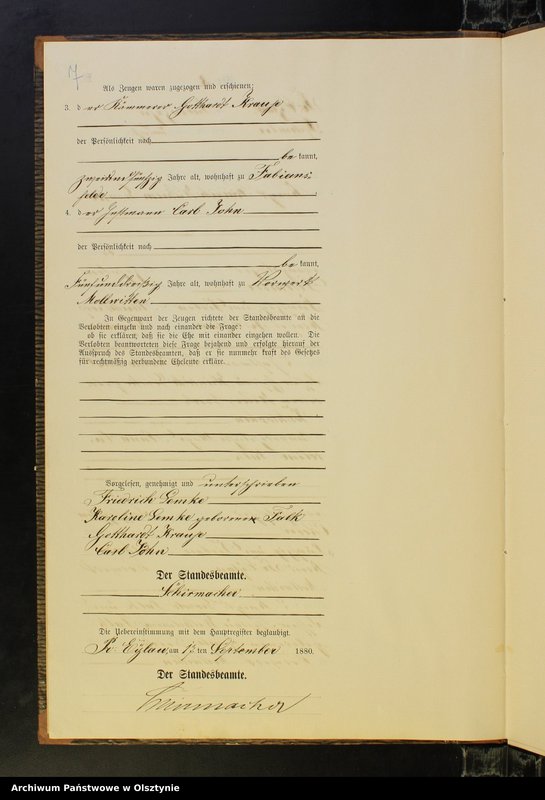 7
Als Zeugen waren zugezogen und erschienen:
3. der Kämmerer Gotthardt Krause
der Persönlichkeit nach
be kannt,
zweiundfünfzig Jahre alt, wohnhaft zu Fabians-
felde
4. der Instmann Carl John
der Persönlichkeit nach
be kannt,
Fünfunddreißig Jahre alt, wohnhaft zu Vorwerk
Mollwitten
In Gegenwart der Zeugen richtete der Standesbeamte an die
Verlobten einzeln und nach einander die Frage:
ob sie erklären, daß sie die Ehe mit einander eingehen wollen. Die
Verlobten beantworteten diese Frage bejahend und erfolgte hierauf der
Ausspruch des Standesbeamten, daß er sie nunmehr kraft des Gesetzes
für rechtmäßig verbundene Eheleute erkläre.
Vorgelesen, genehmigt und unterschrieben
Friedrich Lemke
Karoline Lemke geborene Falk
Gotthardt Krause
Carl John
Der Standesbeamte.
Schirmacher
Die Uebereinstimmung mit dem Hauptregister beglaubigt.
Pr. Eylau, am 17 ten September 1880.
Der Standesbeamte.
Schirmacher
Archiwum Państwowe w Olsztynie